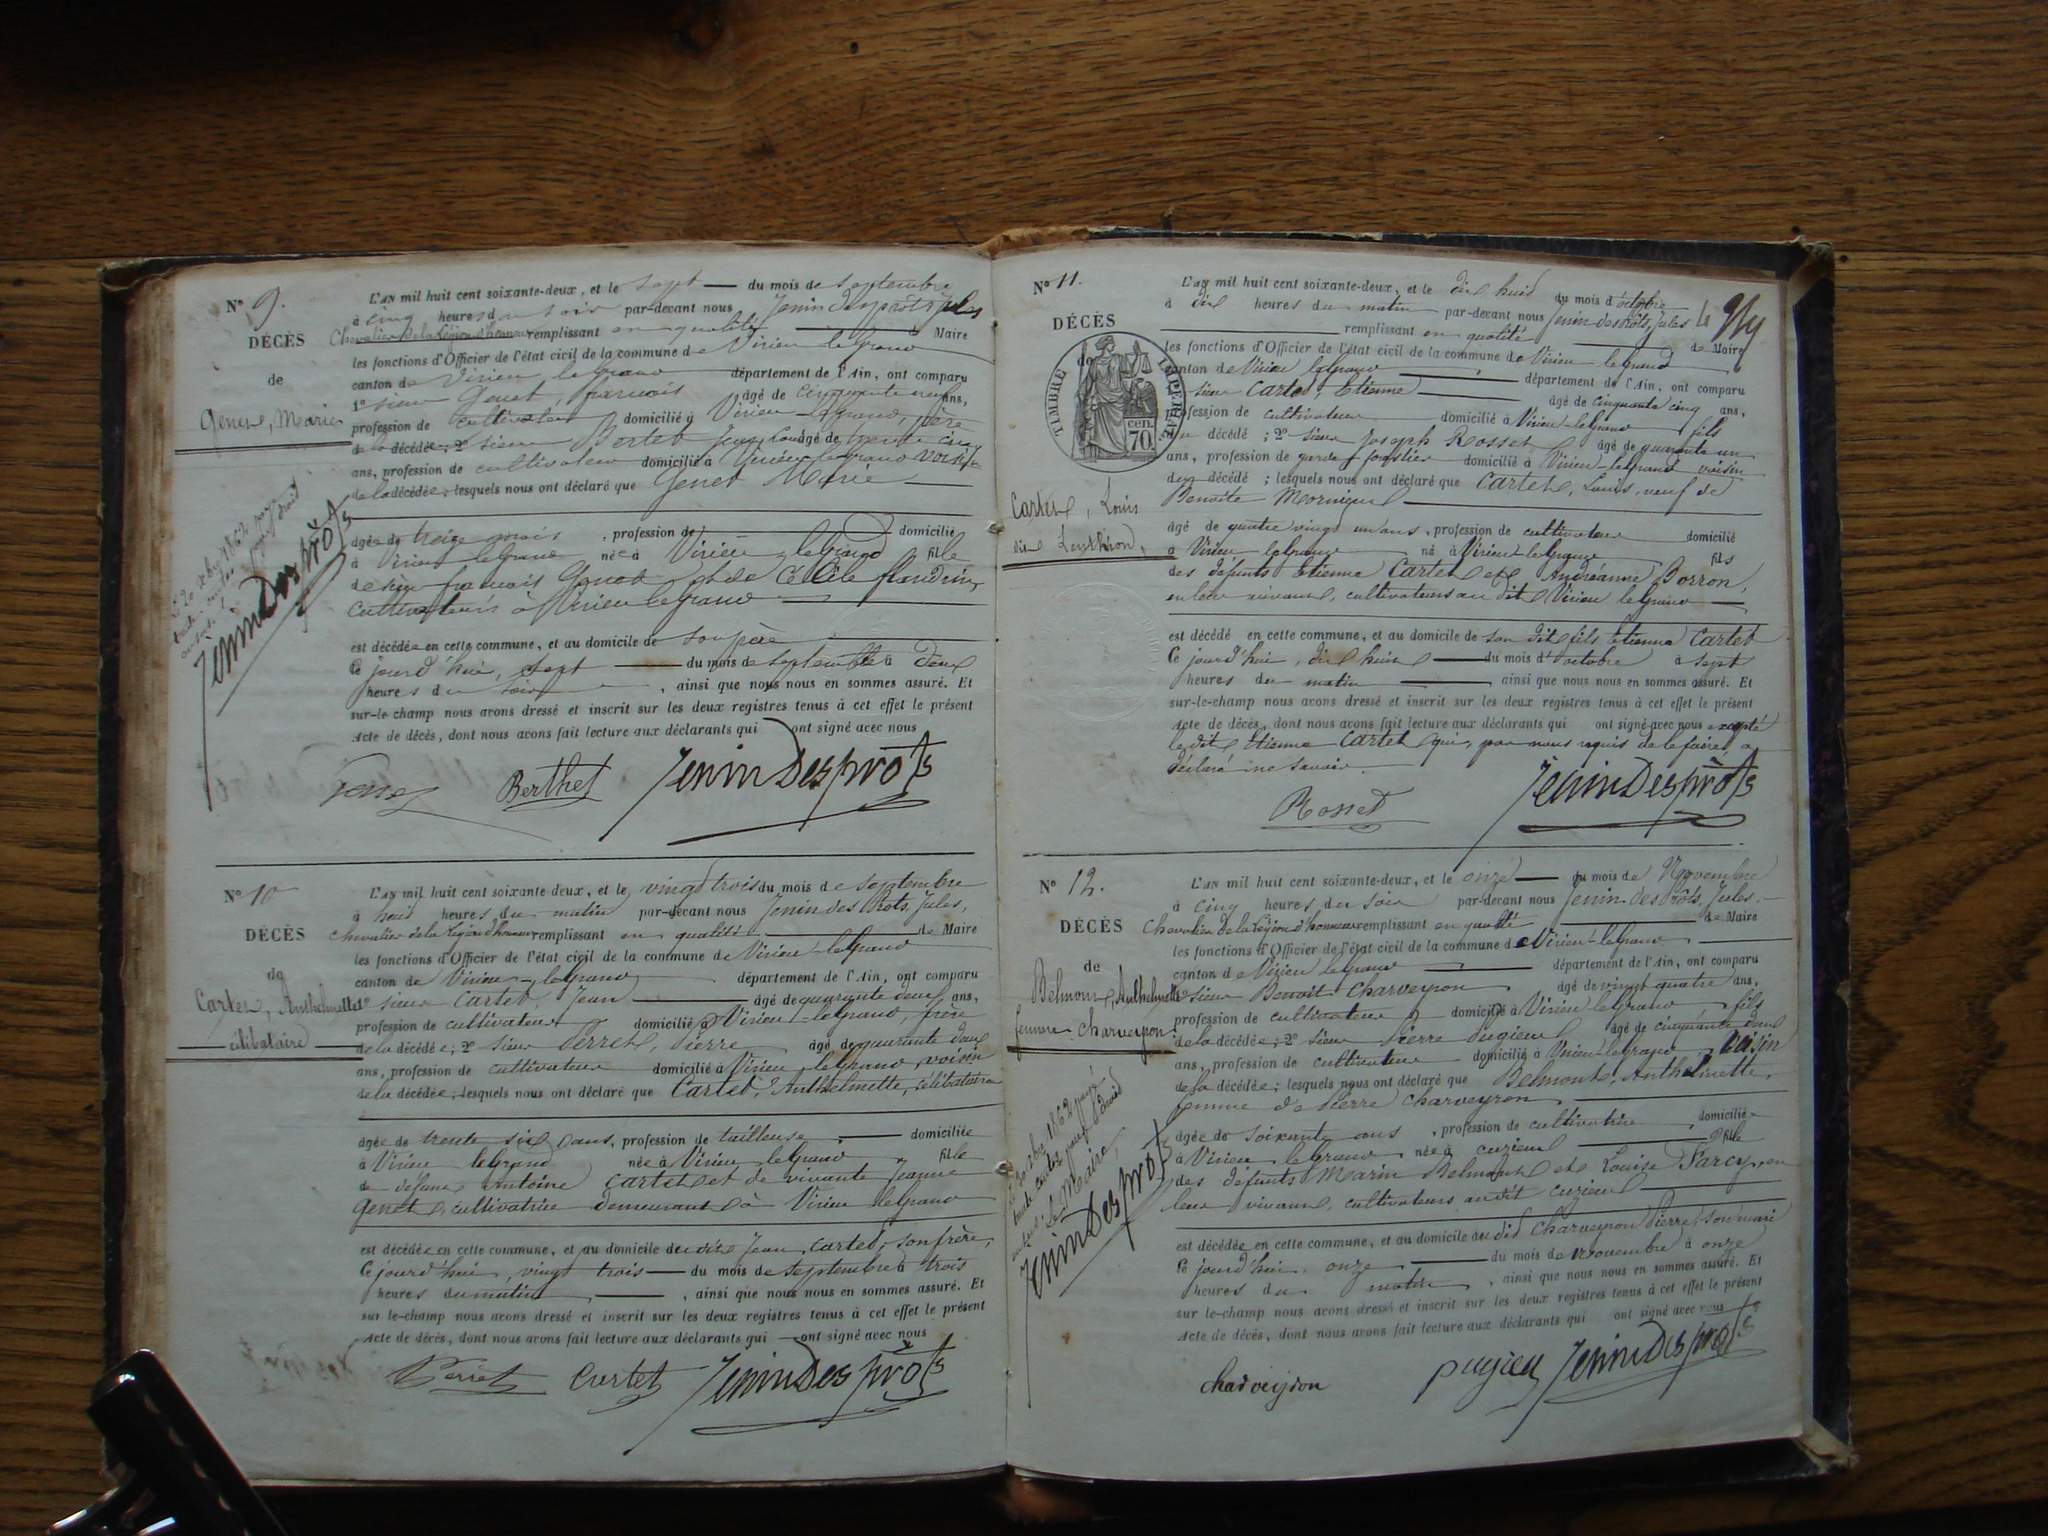 N° 9.
DÉCÈS
de
Genet, Marie
L'AN mil huit cent soixante-deux, et le sept du mois de septembre
à cinq heures du soir par-devant nous Jenin des prôts Jules
Chevalier de la Légion d'honneur remplissant en qualité de Maire
les fonctions d'Officier de l'état civil de la commune de Virieu legrand
canton de Virieu legrand département de l'Ain, ont comparu
1° sieur Genet, francois âgé de cinquante ans,
profession de cultivateur domicilié à Virieu legrand, père
de la décédée; 2° sieur Bertet Jean, âgé de trente cinq
ans, profession de cultivateur domicilié à Virieu legrand voisin
de la décédée; lesquels nous ont déclaré que Genet Marie
âgée de treize mois, profession de domicilié
à Virieu legrand née à Virieu legrand fille
de francois Genet et de Cécile flandrin,
cultivateurs à Virieu legrand
est décédée en cette commune, et au domicile de son père
Ce jourd'hui, sept du mois de septembre à deux
heures du soir, ainsi que nous nous en sommes assuré. Et
sur-le-champ nous avons dressé et inscrit sur les deux registres tenus à cet effet le présent
acte de décès, dont nous avons fait lecture aux déclarants qui ont signé avec nous
JeninDesprôts
Berthet JeninDesprôts
N° 10
DÉCÈS
de
Cartet, Anthelmette
célibataire
L'AN mil huit cent soixante-deux, et le vingt trois du mois de septembre
à huit heures du matin par-devant nous Jenin des Prots, Jules,
Chevalier de la Légion d'honneur remplissant en qualité de Maire
les fonctions d'Officier de l'état civil de la commune de Virieu-legrand
canton de Virieu-legrand département de l'Ain, ont comparu
1° sieur Cartet, Jean âgé de quarante deux ans,
profession de cultivateur domicilié à Virieu-legrand, frère
de la décédée; 2° sieur Perret, Pierre âgé de quarante deux
ans, profession de cultivateur domicilié à Virieu legrand, voisin
de la décédée; lesquels nous ont déclaré que Cartet, Anthelmette, célibataire
âgée de trente six ans, profession de tailleuse, domiciliée
à Virieu legrand née à Virieu legrand fille
de défunt Antoine Cartet et de vivante Jeanne
Genet, cultivatrice demeurant à Virieu legrand
est décédée en cette commune, et au domicile du dit Jean Cartet, son frère,
Ce jourd'hui, vingt trois du mois de septembre à trois
heures du matin, ainsi que nous nous en sommes assuré. Et
sur le-champ nous avons dressé et inscrit sur les deux registres tenus à cet effet le présent
acte de décès, dont nous avons fait lecture aux déclarants qui ont signé avec nous
Perret Cartet JeninDesprôts
N° 11.
DÉCÈS
de
TIMBRE IMPÉRIAL
cen. 70
Cartet, Louis
dit
L'AN mil huit cent soixante-deux, et le dix huit du mois d'octobre
à dix heures du matin par-devant nous Jenin des Prôts, Jules
remplissant en qualité de Maire
les fonctions d'Officier de l'état civil de la commune de Virieu legrand
canton de Virieu legrand département de l'Ain, ont comparu
sieur Cartet, Etienne âgé de cinquante cinq ans,
profession de cultivateur domicilié à Virieu-legrand, fils
du décédé; 2° sieur Joseph Rosset âgé de quarante un
ans, profession de garde forestier domicilié à Virieu-legrand voisin
du décédé; lesquels nous ont déclaré que Cartet, Louis, veuf de
Benoite Mornieux
âgé de quatre vingt un ans, profession de cultivateur domicilié
à Virieu legrand né à Virieu legrand fils
des défunts Etienne Cartet et Andréanne Borron,
en leur vivant, cultivateurs au dit Virieu legrand
est décédé en cette commune, et au domicile de son dit fils Etienne Cartet
Ce jourd'hui, dix huit du mois d'octobre à sept
heures du matin, ainsi que nous nous en sommes assuré. Et
sur-le-champ nous avons dressé et inscrit sur les deux registres tenus à cet effet le présent
acte de décès, dont nous avons fait lecture aux déclarants qui ont signé avec nous excepté
le dit Etienne Cartet qui, par nous requis de le faire, a
déclaré ne savoir.
Rosset JeninDesprôts
N° 12.
DÉCÈS
de
Belmont, Anthelmette
femme Charveyron
L'AN mil huit cent soixante-deux, et le onze du mois de Novembre
à cinq heures du soir par-devant nous Jenin des Prôts, Jules.
Chevalier de la Légion d'honneur remplissant en qualité de Maire
les fonctions d'Officier de l'état civil de la commune de Virieu-legrand
canton de Virieu legrand département de l'Ain, ont comparu
sieur Benoit Charveyron âgé de vingt quatre ans,
profession de cultivateur domicilié à Virieu legrand, fils
de la décédée; 2° sieur Pierre Pugieux âgé de cinquante deux
ans, profession de cultivateur domicilié à Virieu-legrand, voisin
de la décédée; lesquels nous ont déclaré que Belmont, Anthelmette,
femme de Pierre Charveyron
âgée de soixante ans, profession de cultivatrice, domiciliée
à Virieu legrand née à Cuzieux fille
des défunts Marin Belmont et Louise Farcy, en
leur vivant, cultivateurs au dit Cuzieux
est décédée en cette commune, et au domicile du dit Charveyron Pierre, son mari
Ce jourd'hui, onze du mois de novembre à onze
heures du matin, ainsi que nous nous en sommes assuré. Et
sur le-champ nous avons dressé et inscrit sur les deux registres tenus à cet effet le présent
acte de décès, dont nous avons fait lecture aux déclarants qui ont signé avec nous
Le Maire,
JeninDesprôts
charveyron pugieu JeninDesprôts